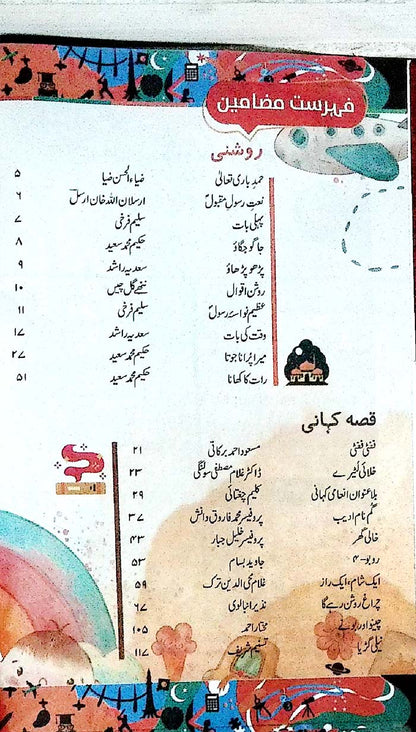 فہرست مضامین
روشنی
حمد باری تعالیٰ ضیاء الحسن ضیا ۵
نعت رسول مقبولؐ ارسلان اللہ خان ارسل ۶
پہلی بات سلیم فرخی ۷
جاگو جگاؤ حکیم محمد سعید ۸
پڑھو پڑھاؤ سعدیہ راشد ۹
روشن اقوال ننھے گل چیں ۱۰
عظیم نواسۂ رسولؐ سلیم فرخی ۱۱
وقت کی بات سعدیہ راشد ۱۷
میرا پُرانا جوتا حکیم محمد سعید ۲۷
رات کا کھانا حکیم محمد سعید ۵۱
قصہ کہانی
ففٹی ففٹی مسعود احمد برکاتی ۲۱
خلائی لُٹیرے ڈاکٹر غلام مصطفیٰ سولنگی ۲۳
بلاعنوان انعامی کہانی کلیم چغتائی ۲۹
گم نام ادیب پروفیسر محمد فاروق دانش ۳۷
خالی گھر پروفیسر خلیل جبار ۴۳
روبو-۴ جاوید بسام ۵۳
ایک شام، ایک راز غلام محی الدین ترک ۵۹
چراغ روشن رہے گا نذیر انبالوی ۶۷
چینو اور بونے مختار احمد ۱۰۵
نیلی گڑیا تسنیم شریف ۱۱۷